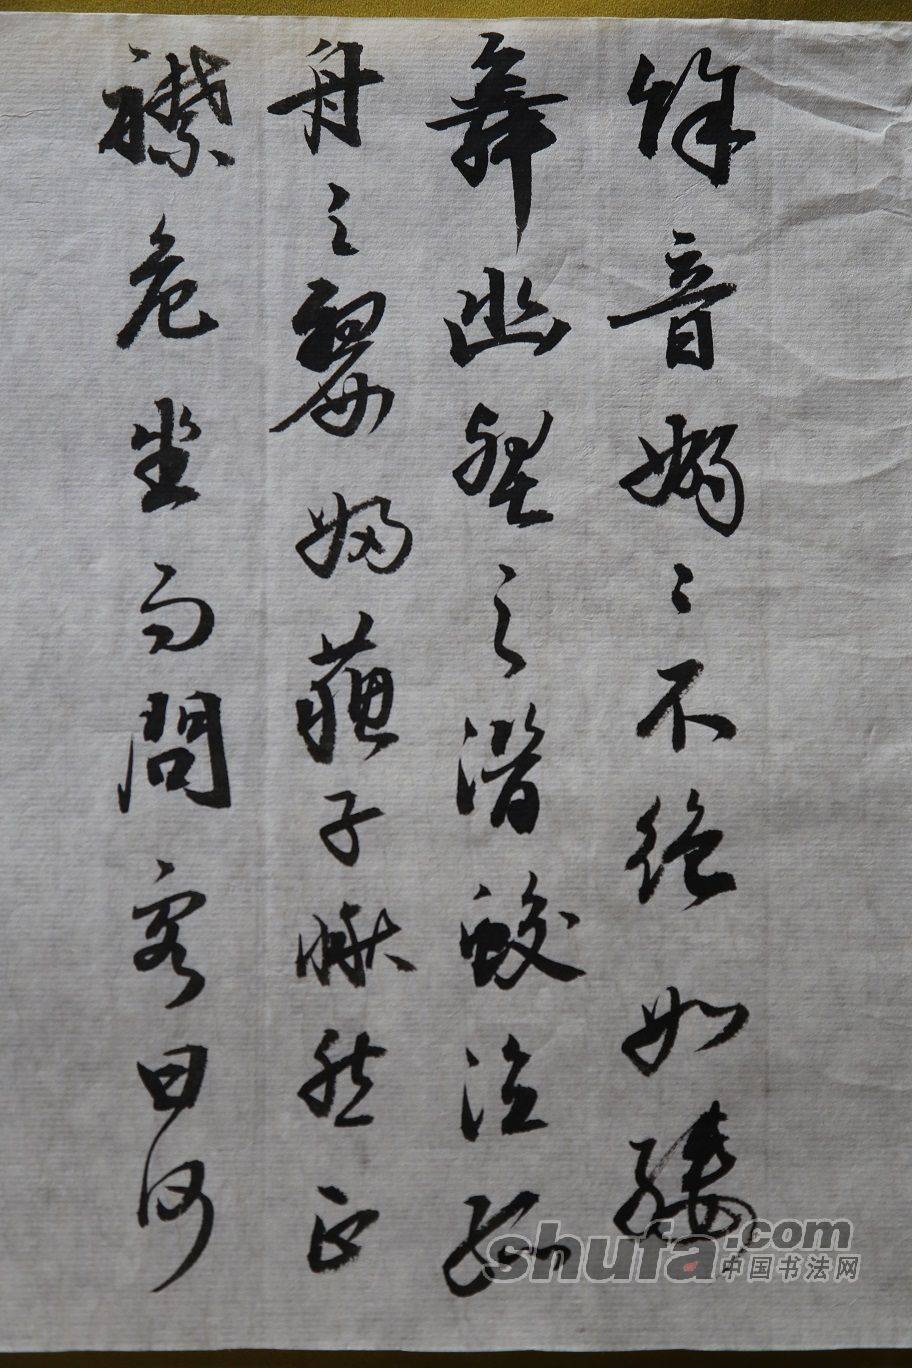 餘音嫋〻不絕如縷
舞幽壑之潛蛟泣孤
舟之嫠婦蘇子愀然正
襟危坐而問客曰何
shufa.com
中国书法网